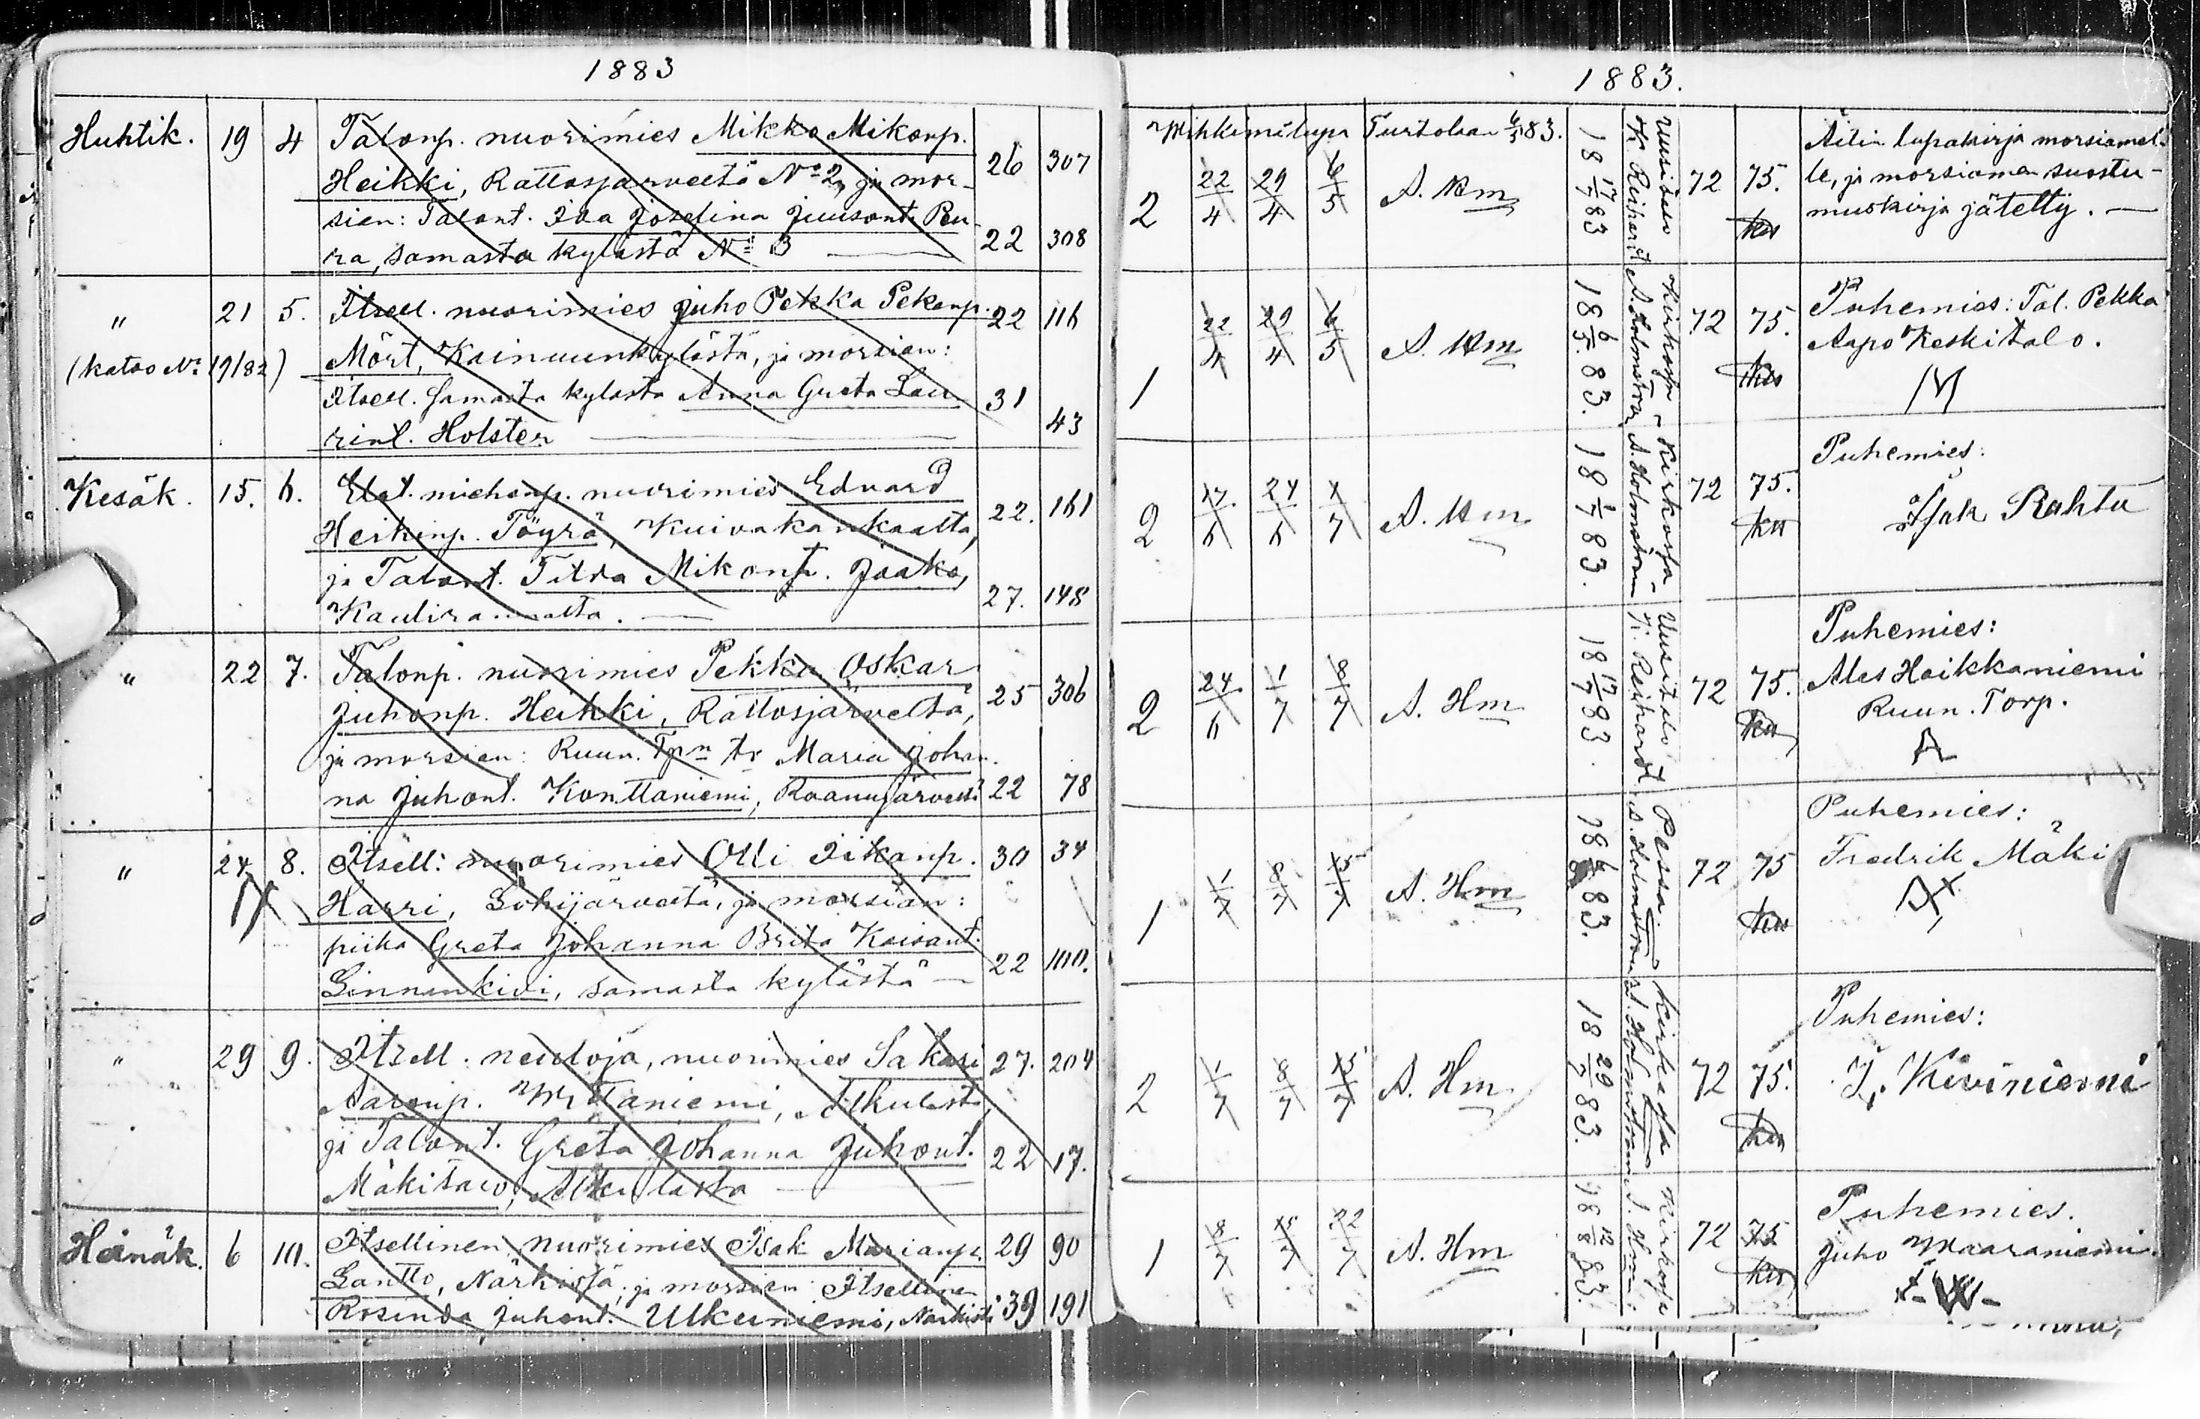 1883
Huhtik. 19 4 Talonp. nuorimies Mikko Mikonp. 26 307
Heikki, Rattosjärveltä No 2, ja mor-
sian: Talont. Iida Josefina Juusont. Peu- 22 308
ra, samasta kylästä No 3
" 21 5. Itsell. nuorimies Juho Pekka Pekanp. 22 116
(katso No 19/82) Mört, Kainuunkylästä, ja morsian:
Itsell. samasta kylästä Anna Greta Lau- 31 43
rint. Holster
Kesäk. 15. 6. Elät. miehenp. nuorimies Edvard 22. 161
Heikinp. Töyrä, Kuivakankaalta,
ja Talont. Tilda Mikont. Jaako, 27. 148
Kaulirannalta.
" 22 7. Talonp. nuorimies Pekka Oskar 25 306
Juhonp. Heikki, Rattosjärveltä,
ja morsian: Ruun. Tpn tr Maria Johan-
na Juhont. Konttaniemi, Raanujärveltä 22 78
" 24 8. Itsell: nuorimies Olli Iikanp. 30 34
Harri, Lohijärveltä, ja morsian:
piika Greta Johanna Brita
Linnankivi, samasta kylästä 22 100.
" 29 9. Itsell. neuloja, nuorimies Sakari 27. 204
Aaronp. Wittaniemi, Alkulasta,
ja Talont. Greta Johanna Juhont. 22 17.
Mäkitalo, Alkulasta
Heinäk. 6 10. Itsellinen nuorimies Isak Marianp. 29 90
Lantto, Närkistä, ja morsian Itsellinen
Rosinda Juhont. Ulkuniemi, Närkistä 39 191
1883.
Wihkimälupa Turtolaan 6/5 83.
2 22/4 29/4 6/5 A. Hm 18 17/7 83 Uusitalo K. Reihardt 72 75. Äitin lupakirja morsiamel-
le, ja morsiamen suostu-
muskirja jätetty.
1 22/4 29/4 6/5 A. Hm 18 6/5. 83. Kirkossa A. Holmström 72 75. Puhemies: Tal. Pekka
Aapo Keskitalo.
2 17/6 24/6 1/7 A. Hm 18 1/7 83. Kirkossa A. Holmström 72 75. Puhemies:
Isak Rahtu
2 24/6 1/7 8/7 A. Hm 18 17/7 83. Uusitalo K. Reihardt 72 75. Puhemies:
Ales Heikkaniemi
Ruun. Torp.
1 1/7 8/7 15/7 A. Hm 83. Pessa A. Holmström 72 75 Puhemies:
Fredrik Mäki
2 1/7 8/7 15/7 A. Hm 18 29/7 83. Kirkossa A. Holmström 72 75. Puhemies:
I. Kiviniemi
1 8/7 15/7 22/7 A. Hm 18 12/8 83. Kirkossa A. Hm: 72 75 Puhemies.
Juho Maaraniemi.